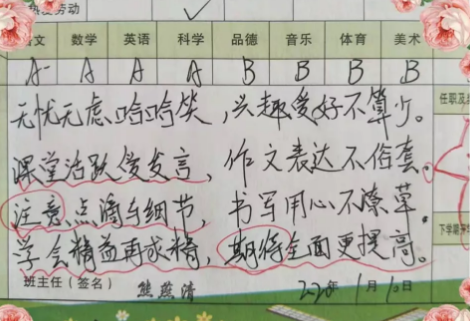 热爱劳动 ✓
语文 数学 英语 科学 品德 音乐 体育 美术
A- A A A B B B B
无忧无虑哈哈笑，兴趣爱好不算少。
课堂活跃爱发言，作文表达不俗套。
注意点滴与细节，书写用心不潦草。
学会精益再求精，期待全面更提高。
任职及
下学期
班主任（签名） 熊燕清 2020年1月10日